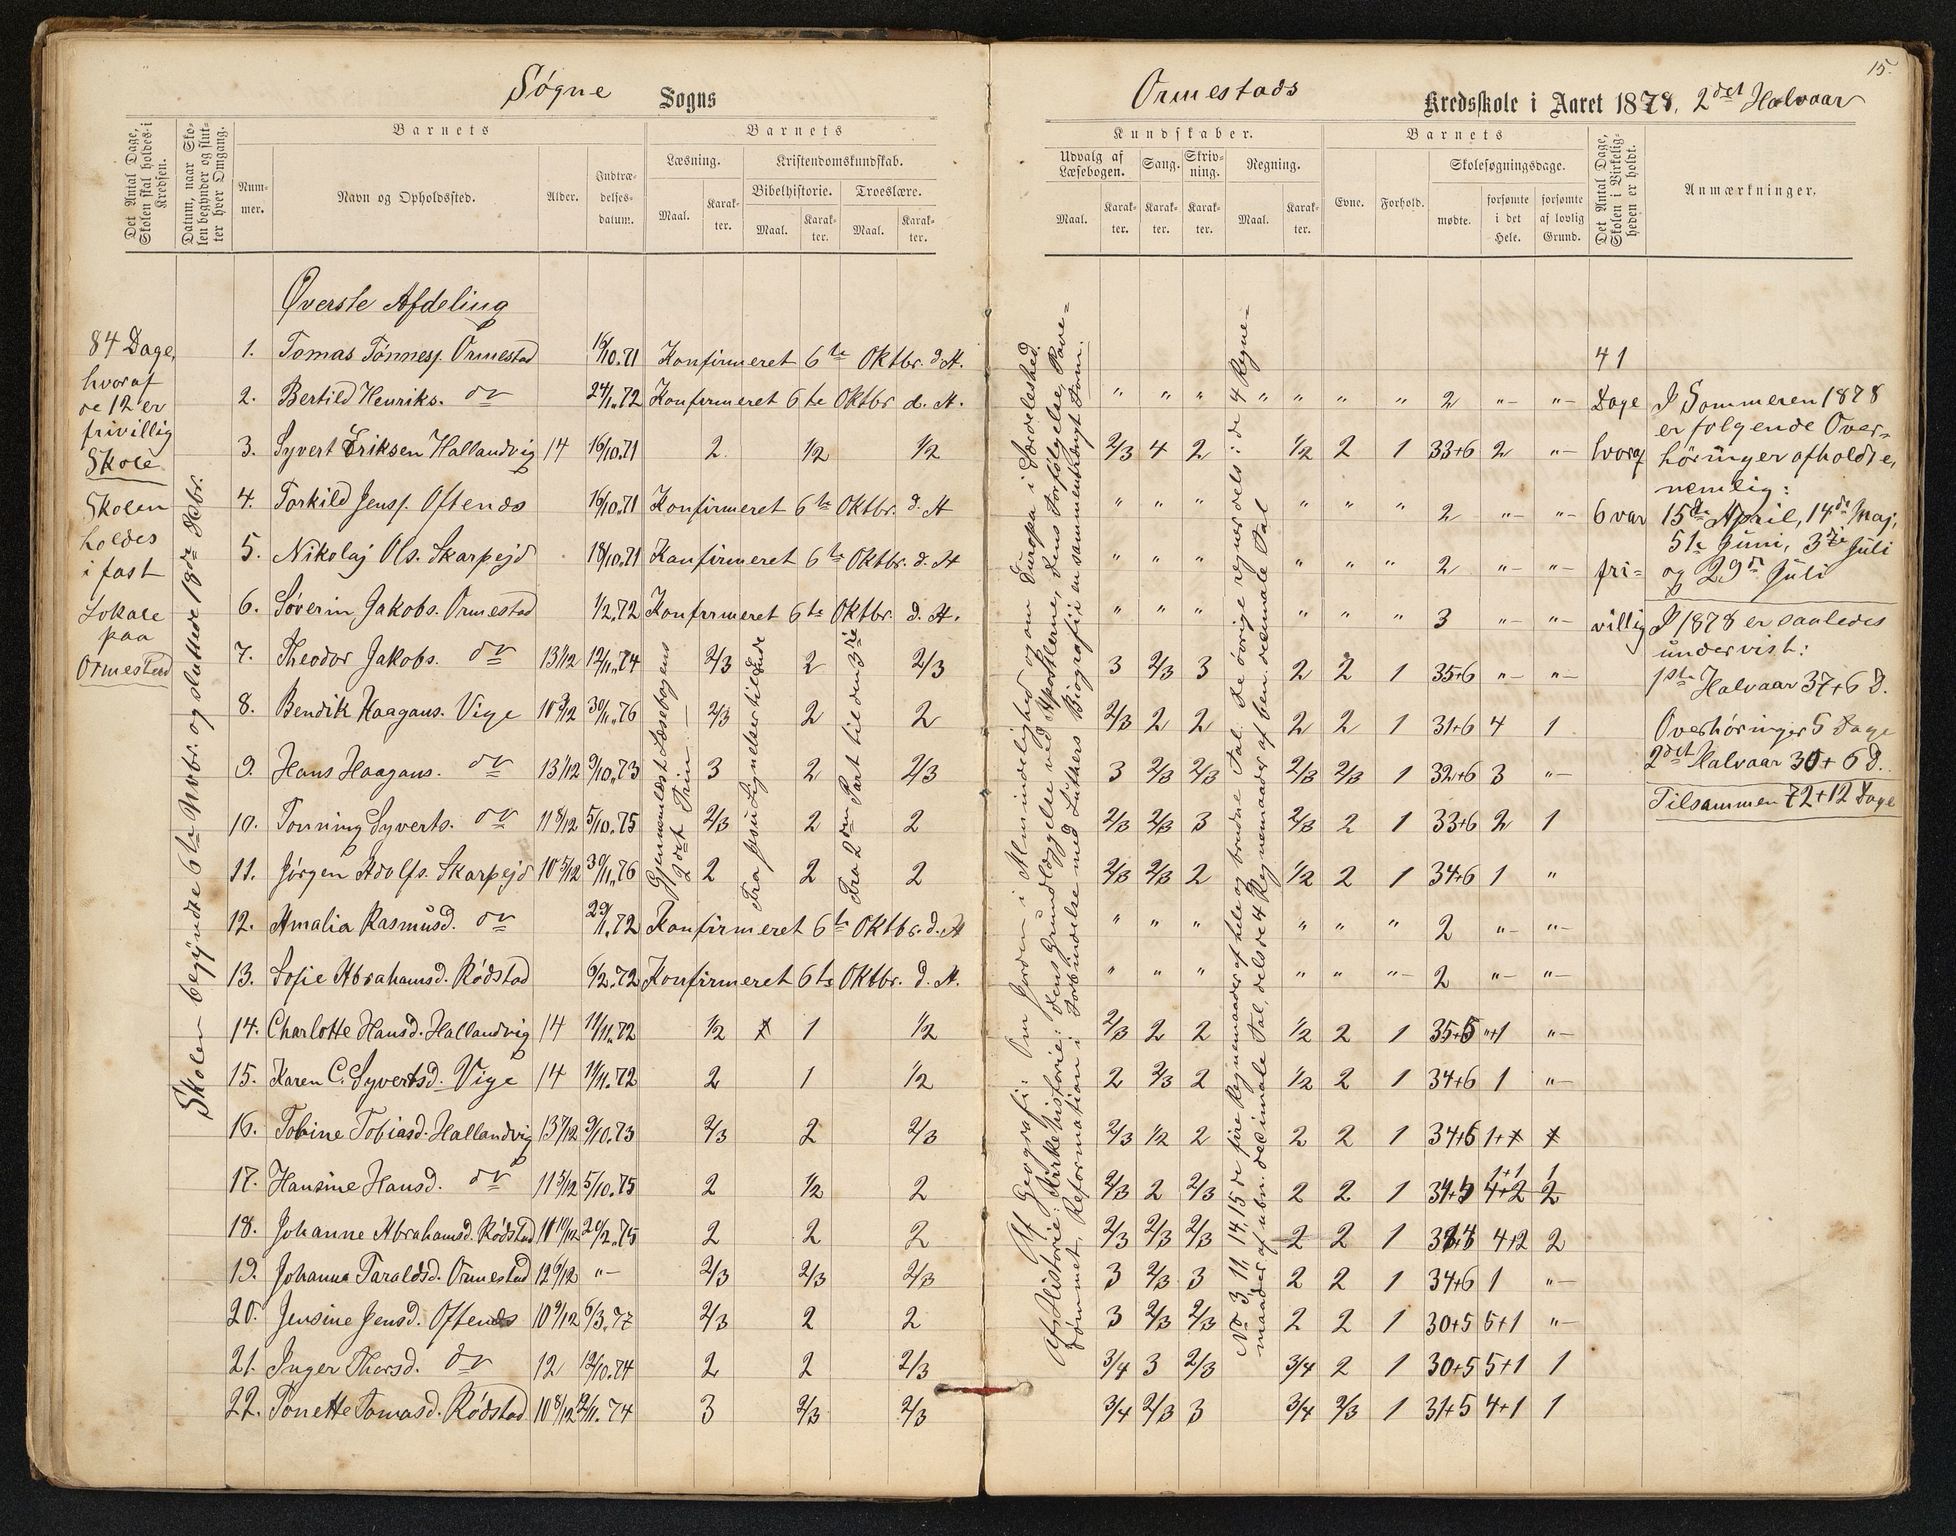 15.
Søgne Sogns
Ormestads Kredsskole i Aaret 1878, 2det Halvaar
Det Antal Dage, Skolen skal holdes i Kredsen.
Datum, naar Skolen begynder og slutter hver Omgang.
Barnets
Nummer.
Navn og Opholdssted.
Alder.
Indtrædelsesdatum.
Barnets
Læsning.
Maal.
Karakter.
Kristendomskundskab.
Bibelhistorie.
Maal.
Karakter.
Troeslære.
Maal.
Karakter.
Kundskaber.
Udvalg af Læsebogen.
Maal.
Karakter.
Sang.
Karakter.
Skrivning.
Karakter.
Regning.
Maal.
Karakter.
Barnets
Evne.
Forhold.
Skolesøgningsdage.
mødte.
forsømte i det Hele.
forsømte af lovlig Grund.
Det Antal Dage, Skolen i Virkeligheden er holdt.
Anmærkninger.
84 Dage,
hvoraf
de 12 er
frivillig
Skole
Skolen
holdes
i fast
Lokale
paa
Ormestad
Skolen begyndte 6te Novbr. og sluttede 18de Debr.
Øverste Afdeling
1. Tomas Tønnesp. Ormestad 16/10.71 Konfirmeret 6te Oktbr. d. A.
2. Bertild Henriks. do 24/1.72 Konfirmeret 6te Oktbr d. A. " " " " " " " 2 "- "-
3. Syvert Eriksen Hallandvig 14 16/10.71 2 1/2 1/2 2/3 4 2 1/2 2 1 33+6 2 "-
4. Torkild Jensp. Oftenes 16/10.71 Konfirmeret 6te Oktbr. d. A " " " " " " 2 "- "-
5. Nikolaj Ols. Skarpejd 18/10.71 Konfirmeret 6te Oktbr. d. A " " " " " " 2 "- "-
6. Søverin Jakobs. Ormestad 1/2.72 Konfirmeret 6te Oktbr. d. A. " " " " " " 3 "- "-
7. Theodor Jakobs. do 13 1/12 12/11.74 2/3 2 2/3 3 2/3 3 2 2 1 35+6 "- "-
8. Bendik Haagans. Vige 10 3/12 30/11.76 2/3 2 2 2/3 2 2 2 2 1 31+6 4 1
9. Hans Haagans. do 13 1/12 9/10.73 3 2 2/3 3 2/3 2/3 2/3 2/3 1 32+6 3 "-
10. Tønning Syverts. do 11 8/12 5/10.75 2/3 2 2 2/3 2/3 3 2/3 2 1 33+6 2 1
11. Jørgen Adolfs. Skarpejd 10 5/12 30/11.76 2 2 2 2/3 2/3 2 1/2 2 1 34+6 1 "
12. Amalia Rasmusd. do 29/1.72 Konfirmeret 6te Oktbr. d. A " " " " " " 2 "- "-
13. Sofie Abrahamsd. Rødstad 6/2.72 Konfirmeret 6te Oktbr. d. A. " " " " " "- 2 "- "-
14. Charlotte Hansd. Hallandvig 14 11/11.72 1/2 1 1/2 2/3 2 2 1/2 2 1 35+5 "+1 "-
15. Karen C. Syvertsd. Vige 14 11/11.72 2 1 1/2 2 2/3 2 1/2 2 1 34+6 1 "-
16. Tobine Tobiasd. Hallandvig 13 7/12 9/10.73 2/3 2 2/3 2/3 1/2 2 2 2 1 34+6
17. Hansine Hansd. do 11 5/12 5/10.75 2 1/2 2 2/3 2 2/3 2 2 1
18. Johanne Abrahamsd. Rødstad 10 10/12 20/2.75 2 2 2 2/3 2/3 2/3 2 2 1 4+2 2
19. Johanna Taraldsd. Ormestad 12 6/12 "- 2/3 2/3 2/3 3 2/3 3 2 2 1 34+6 1 "-
20. Jensine Jensd. Oftenes 10 9/12 6/3.77 2/3 2 2 3 2/3 2/3 2 2 1 30+5 5+1 "-
21. Inger Thorsd. do 12 12/10.74 2 2 2/3 3/4 3 2/3 3/4 2 1 30+5 5+1 1
22. Tonette Tomasd. Rødstad 10 8/12 2/11.74 3 2/3 2/3 3/4 2/3 3 3/4 2/3 1 31+5 4+1 1
Gjennemlæst Læsebogens
2det Trin
Fra Jesu Lignelser til Ende
Fra 2den Part til den 3die
Af Geografi: Om Jorden i Almindelighed og om Europa i Særdeleshed.
Af Historie: Kirkehistorie: dens Grundlæggelse ved Apostlerne, dens Forfølgelse, Pave-
dømmet, Reformation i Forbindelse med Luthers Biografi i en sammentrængt Form.
No 3, 11, 14, 15 de fire Regnemaader af hele og brudne Tal. De øvrige regner dels: de 4 Regne-
maader af ubn. decimale Tal, dels de 4 Regnemaader af ben. decimale Tal
41
Dage
hvoraf
6 var
fri-
villig
I Sommeren 1878
er følgende Over-
høringer afholdte,
nemlig:
15de April, 14de Maj,
5te Juni, 3die Juli
og 29de Juli
I 1878 er saaledes
undervist:
1ste Halvaar 37+6 D.
Overhøringer 5 Dage
2det Halvaar 30+6 D.
Tilsammen 72+12 Dage